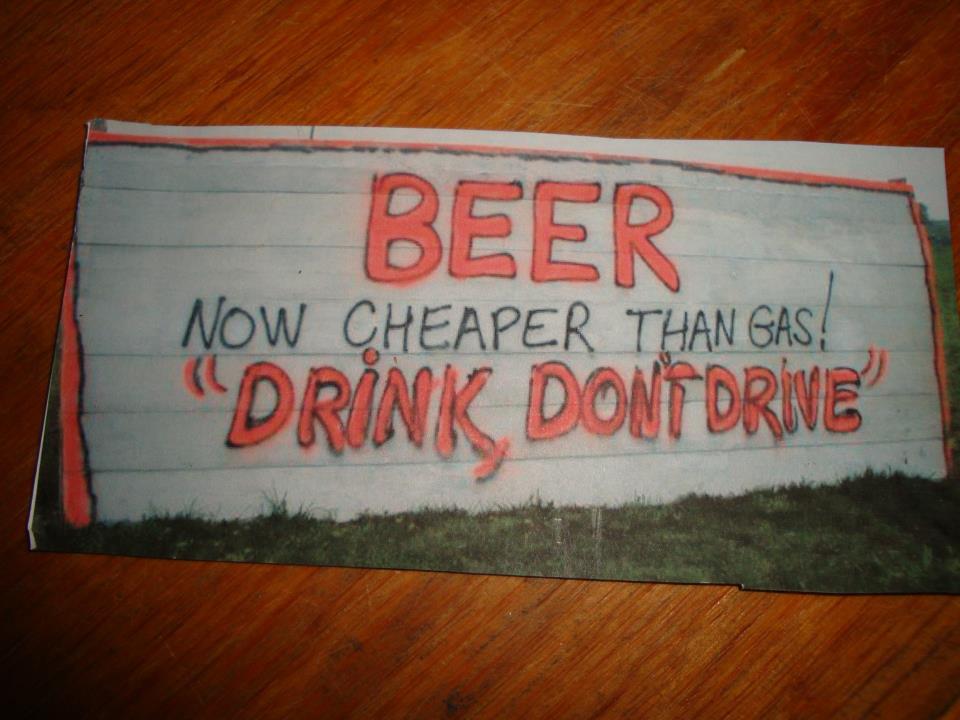 BEER
NOW CHEAPER THAN GAS!
"DRiNK, DON'T DRiVE"